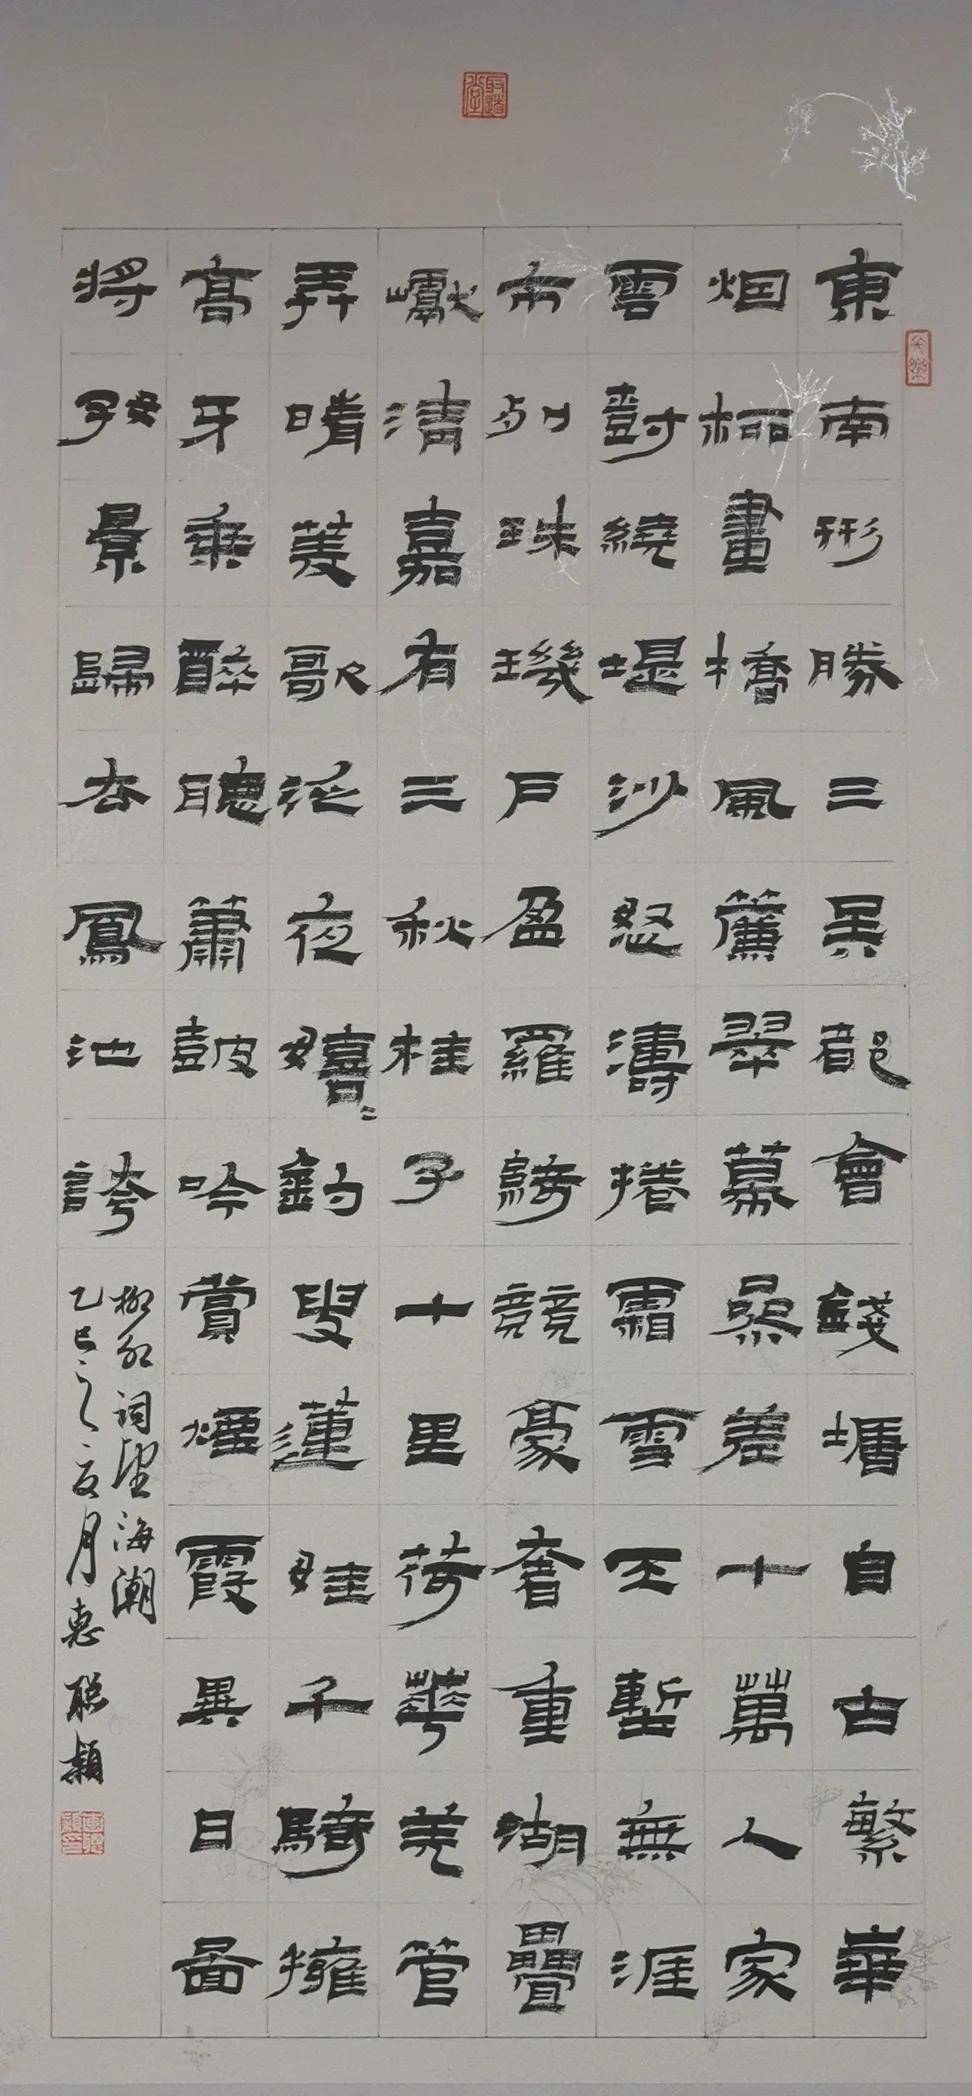 東南形勝三吳都會錢塘自古繁華
烟柳畫橋風簾翠幕參差十萬人家
雲尌繞堤沙怒濤捲霜雪天塹無涯
市列珠璣戶盈羅綺競豪奢重湖疊
巘清嘉有三秋桂子十里荷華羌管
弄晴菱歌泛夜嬉〻釣叟蓮娃千騎擁
高牙乘醉聽簫鼓吟賞煙霞異日圖
將好景歸去鳳池誇
柳永詞望海潮
乙巳之夏月惠聯穎